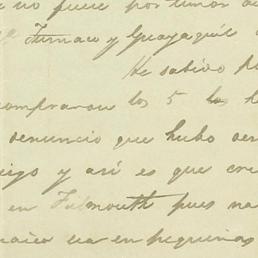 no fuese por temor a
Tumaco y Guayaquil
He sabido p
compraron los 5 lo
denuncio que hubo
igo y así es que cre
en Falmouth pues na
en pequeñas